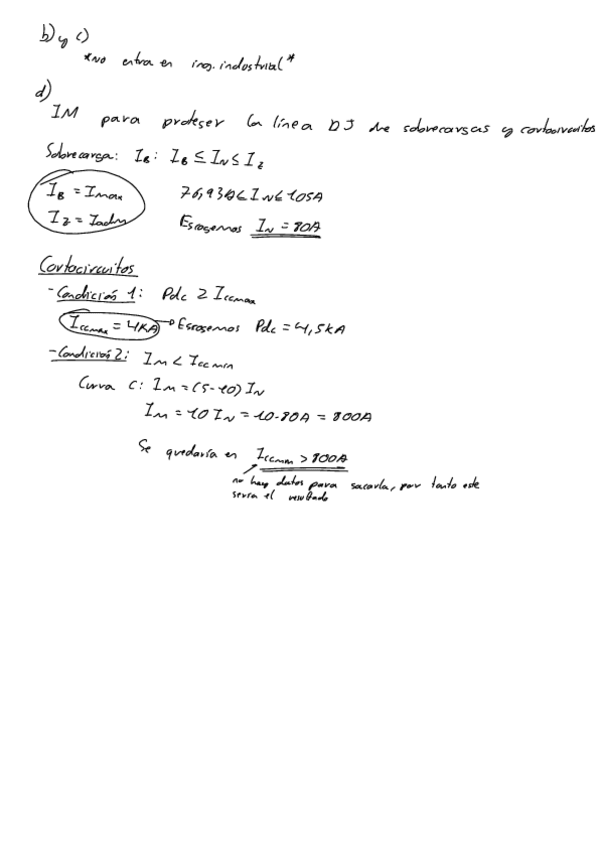 b) y c)
*No entra en ing. industrial*
d)
IM para proteger la línea DJ de sobrecargas y cortocircuitos
Sobrecarga: I_B: I_B ≤ I_N ≤ I_Z
I_B = Imax 76,93A ≤ I_N ≤ 105A
I_Z = Iadm Escogemos I_N = 80A
Cortocircuitos
- Condición 1: Pdc ≥ Iccmax
Iccmax = 4kA → Escogemos Pdc = 4,5kA
- Condición 2: Im < Iccmin
Curva C: Im = (5-10) I_N
Im = 10 I_N = 10·80A = 800A
Se quedaría en Iccmin > 800A
no hay datos para sacarla, por tanto este
sería el resultado